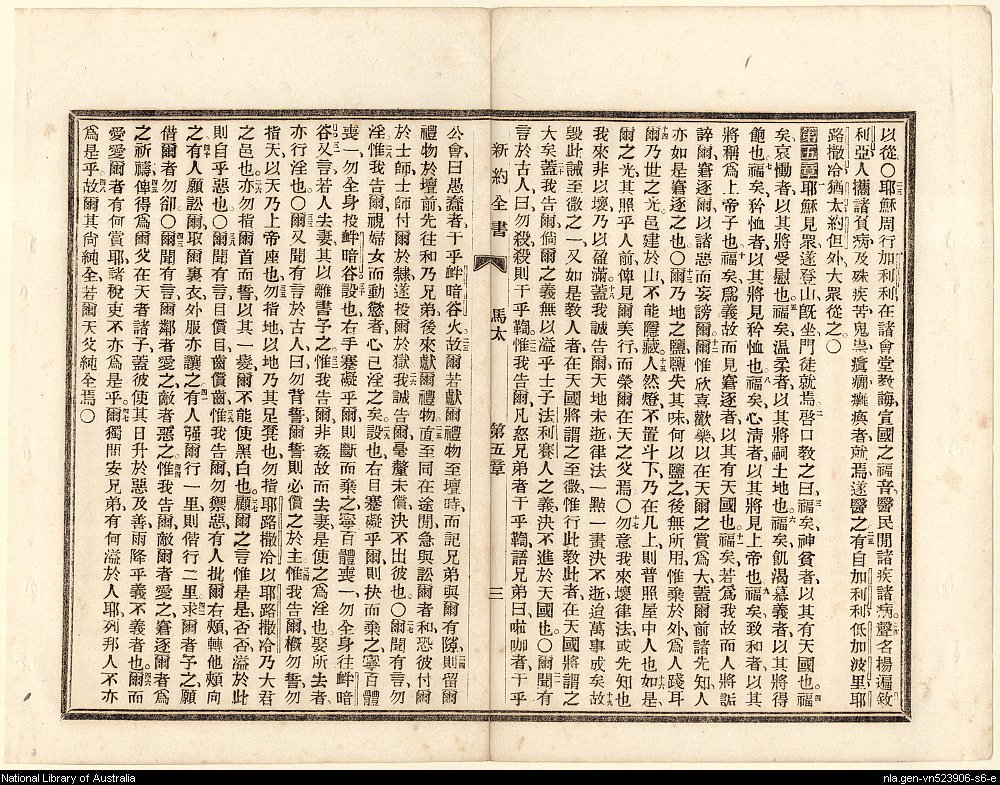 以從〇耶穌周行加利利在諸會堂敎誨宣國之福音醫民間諸疾諸病聲名揚遍敘
利亞人攜諸負病及殊疾苦鬼祟癲癇癱瘓者就焉遂醫之有自加利利低加波里耶
路撒冷猶太約但外大眾從之〇
第五章耶穌見眾遂登山旣坐門徒就焉啓口敎之曰福矣神貧者以其有天國也福
矣哀慟者以其將受慰也福矣溫柔者以其將嗣土地也福矣飢渴慕義者以其將得
飽也福矣矜恤者以其將見矜恤也福矣心淸者以其將見上帝也福矣致和者以其
將稱爲上帝子也福矣爲義故而見窘逐者以其有天國也福矣若爲我故而人將詬
誶爾窘逐爾以諸惡而妄謗爾爾惟欣喜歡樂以在天爾之賞爲大蓋爾前諸先知人
亦如是窘逐之也〇爾乃地之鹽鹽失其味何以鹽之後無所用惟棄於外爲人踐耳
爾乃世之光邑建於山不能隱藏人然燈不置斗下乃在几上則普照屋中人也如是
爾之光其照乎人前俾見爾美行而榮爾在天之父焉〇勿意我來壞律法或先知也
我來非以壞乃以盈滿蓋我誠告爾天地未逝律法一點一畫決不逝迨萬事成矣故
毀此誡至微之一又如是敎人者在天國將謂之至微惟行此敎此者在天國將謂之
大矣蓋我告爾倘爾之義無以溢乎士子法利賽人之義決不進於天國也〇爾聞有
言於古人曰勿殺殺則干乎鞫惟我告爾凡怒兄弟者干乎鞫語兄弟曰啦咖者干乎
新約全書 馬太 第五章 三
公會曰愚蠢者干乎衅暗谷火故爾若獻爾禮物至壇時而記兄弟與爾有隙則留爾
禮物於壇前先往和乃兄弟後來獻爾禮物直至同在途間急與訟爾者和恐彼付爾
於士師士師付爾於隸遂投爾於獄我誠告爾毫釐未償決不出彼也〇爾聞有言勿
淫惟我告爾視婦女而動慾者心已淫之矣設也右目蹇礙乎爾則抉而棄之寧百體
喪一勿全身投衅暗谷設也右手蹇礙乎爾則斷而棄之寧百體喪一勿全身往衅暗
谷又言若人去妻其以離書予之惟我告爾非姦故而去妻是使之爲淫也娶所去者
亦行淫也〇爾又聞有言於古人曰勿背誓爾誓則必償之於主惟我告爾槪勿誓勿
指天以天乃上帝座也勿指地以地乃其足凳也勿指耶路撒冷以耶路撒冷乃大君
之邑也亦勿指爾首而誓以其一髮爾不能使黑白也顧爾之言惟是是否否溢於此
則自乎惡也〇爾聞有言目償目齒償齒惟我告爾勿禦惡有人批爾右頰轉他頰向
之有人願訟爾取爾裏衣外服亦讓之有人强爾行一里則偕行二里求爾者予之願
借爾者勿卻〇爾聞有言爾鄰者愛之敵者惡之惟我告爾敵爾者愛之窘逐爾者爲
之祈禱俾得爲爾父在天者諸子蓋彼使其日升於惡及善雨降乎義不義者也爾而
愛愛爾者有何賞耶諸稅吏不亦爲是乎爾獨問安兄弟有何溢於人耶列邦人不亦
爲是乎故爾其尙純全若爾天父純全焉〇
National Library of Australia
nla.gen-vn523906-s6-e